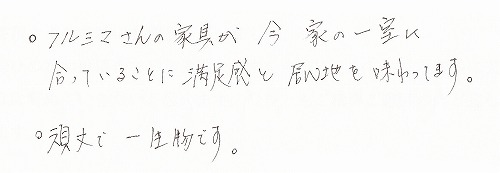 ○フルミマさんの家具が 今 家の一室に
合っていることに満足感と居心地を味わってます。
○頑丈で一生物です。